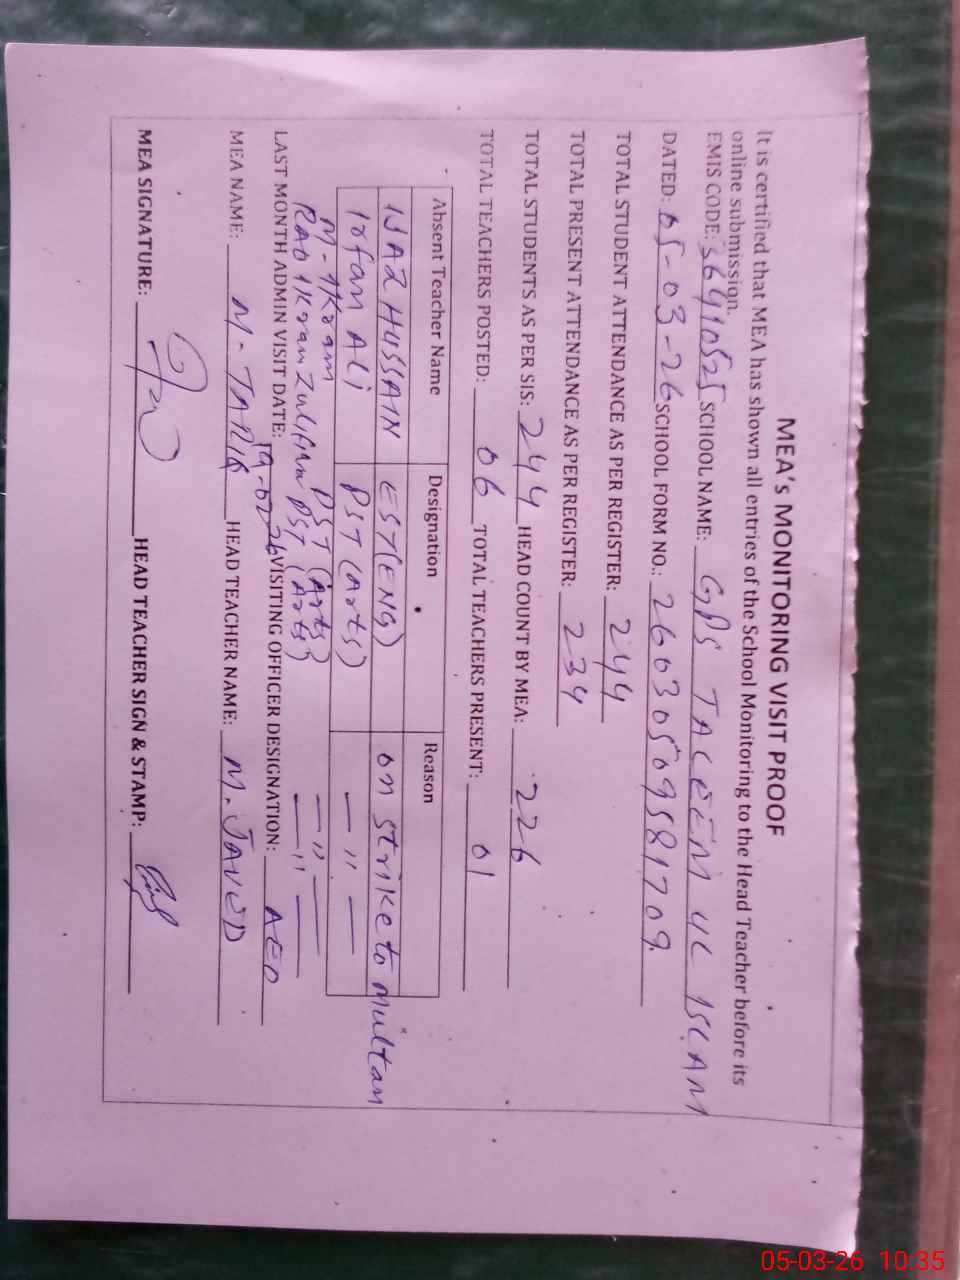 MEA's MONITORING VISIT PROOF
It is certified that MEA has shown all entries of the School Monitoring to the Head Teacher before its
online submission.
EMIS CODE: 36410525 SCHOOL NAME: GPS TALEEM UL ISLAM
DATED: 05-03-26 SCHOOL FORM NO.: 26030509581709
TOTAL STUDENT ATTENDANCE AS PER REGISTER: 244
TOTAL PRESENT ATTENDANCE AS PER REGISTER: 234
TOTAL STUDENTS AS PER SIS: 244 HEAD COUNT BY MEA: 226
TOTAL TEACHERS POSTED: 06 TOTAL TEACHERS PRESENT: 01
Absent Teacher Name Designation Reason
IJAZ HUSSAIN EST(ENG) on strike to Multan
Irfan Ali PST (Arts) — " —
M-IKram PST (Arts) — " —
Rao IKram Zulfiqar PST (Arts) — " —
LAST MONTH ADMIN VISIT DATE: 19-02-26 VISITING OFFICER DESIGNATION: AEO
MEA NAME: M-TARIQ HEAD TEACHER NAME: M. JAVED
MEA SIGNATURE: HEAD TEACHER SIGN & STAMP:
05-03-26 10:35